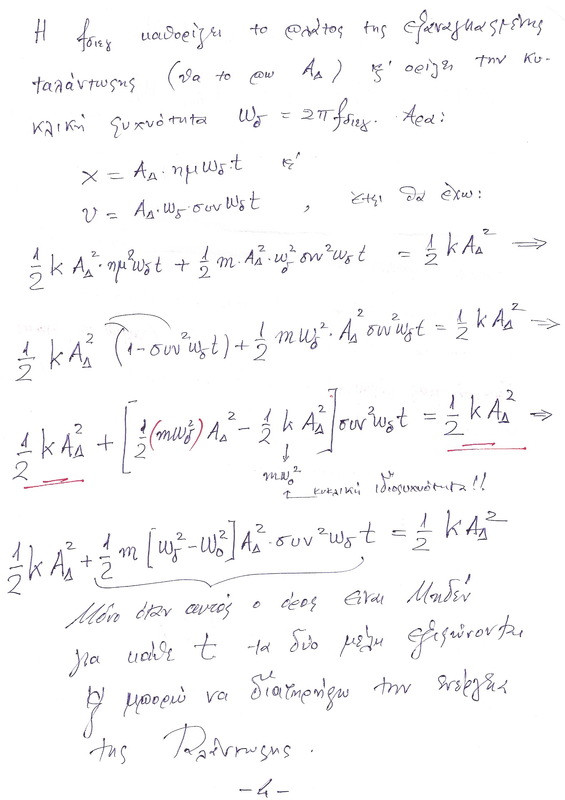 Η fδιεγ καθορίζει το πλάτος της εξαναγκασμένης
ταλάντωσης (θα το πω A_Δ) κ' ορίζει την κυ-
κλική συχνότητα ω_δ = 2πfδιεγ. Άρα:
x = A_Δ · ημω_δ·t κ'
υ = A_Δ·ω_δ·συνω_δt , έτσι θα έχω:
1/2 k A_Δ²·ημ²ω_δt + 1/2 m·A_Δ²·ω_δ²συν²ω_δt = 1/2 k A_Δ² ⇒
1/2 k A_Δ² (1-συν²ω_δt) + 1/2 mω_δ²·A_Δ²συν²ω_δt = 1/2 k A_Δ² ⇒
1/2 k A_Δ² + [1/2 (mω_δ²) A_Δ² - 1/2 k A_Δ²] συν²ω_δt = 1/2 k A_Δ² ⇒
mω_0²
κυκλική ιδιοσυχνότητα!!
1/2 k A_Δ² + 1/2 m [ω_δ² - ω_0²] A_Δ²·συν²ω_δ t = 1/2 k A_Δ²
Μόνο όταν αυτός ο όρος είναι Μηδέν
για κάθε t τα δύο μέλη εξισώνονται
κ' μπορώ να διατηρήσω την ενέργεια
της Ταλάντωσης.
-4-